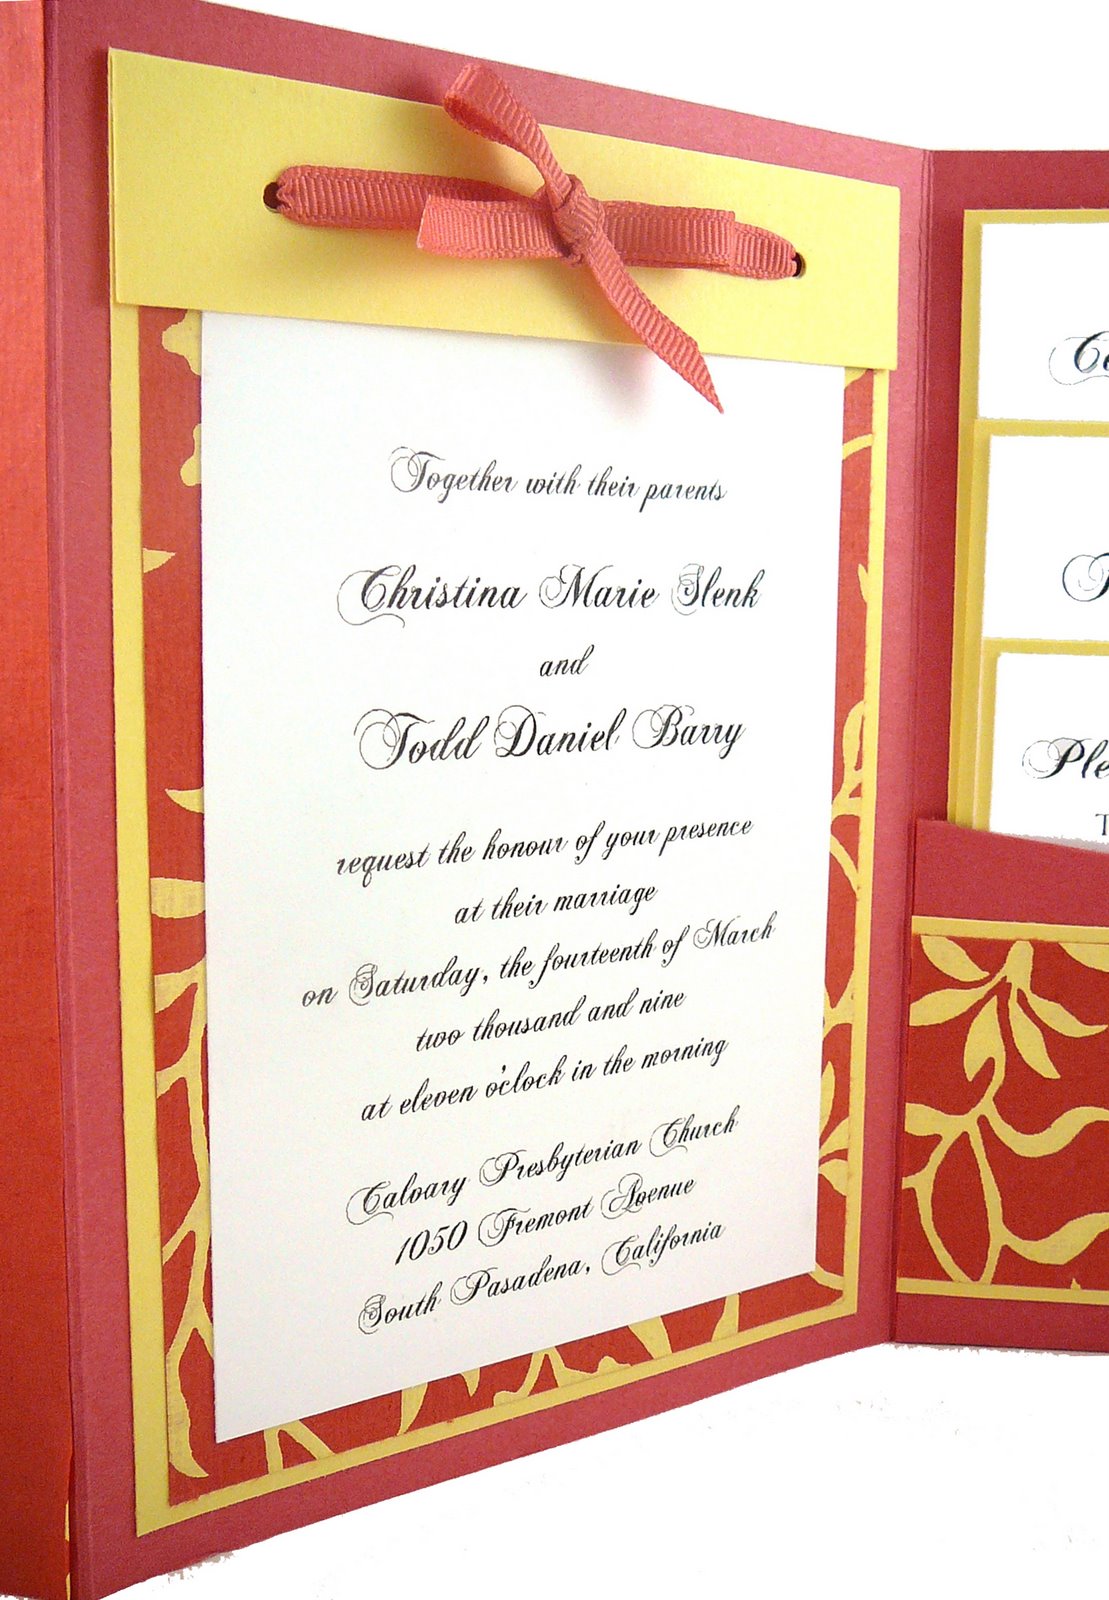 Together with their parents
Christina Marie Slenk
and
Todd Daniel Barry
request the honour of your presence
at their marriage
on Saturday, the fourteenth of March
two thousand and nine
at eleven o'clock in the morning
Calvary Presbyterian Church
1050 Fremont Avenue
South Pasadena, California